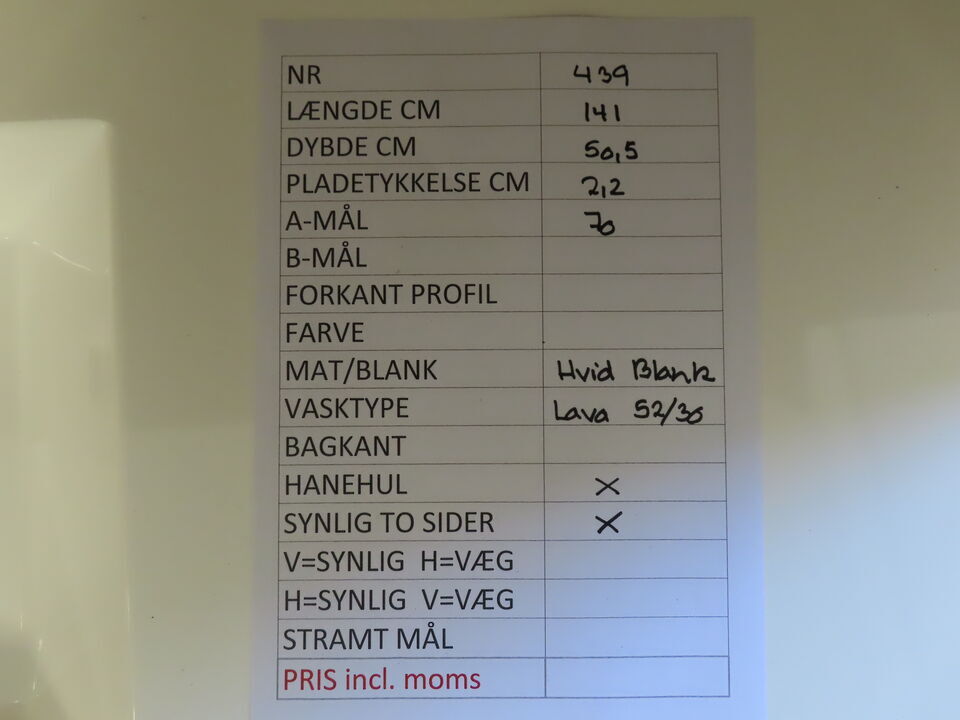 NR 439
LÆNGDE CM 141
DYBDE CM 50,5
PLADETYKKELSE CM 2,2
A-MÅL 70
B-MÅL
FORKANT PROFIL
FARVE
MAT/BLANK Hvid Blank
VASKTYPE Lava 52/30
BAGKANT
HANEHUL X
SYNLIG TO SIDER X
V=SYNLIG H=VÆG
H=SYNLIG V=VÆG
STRAMT MÅL
PRIS incl. moms